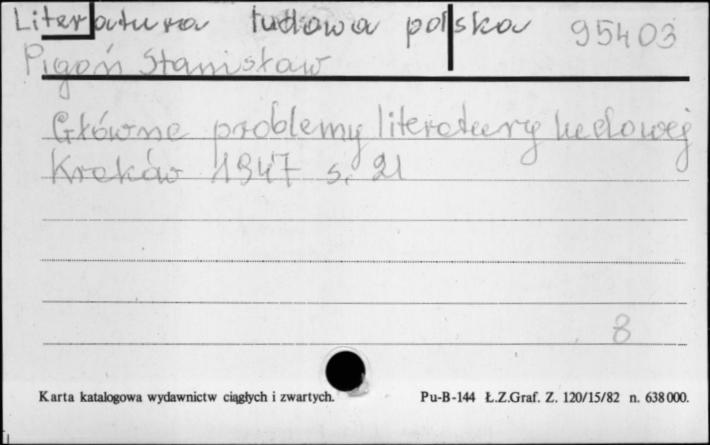 Literatura ludowa polska 95403
Pigoń Stanisław
Główne problemy literatury ludowej
Kraków 1947 s. 21
8
Karta katalogowa wydawnictw ciągłych i zwartych. Pu-B-144 Ł.Z.Graf. Z. 120/15/82 n. 638000.